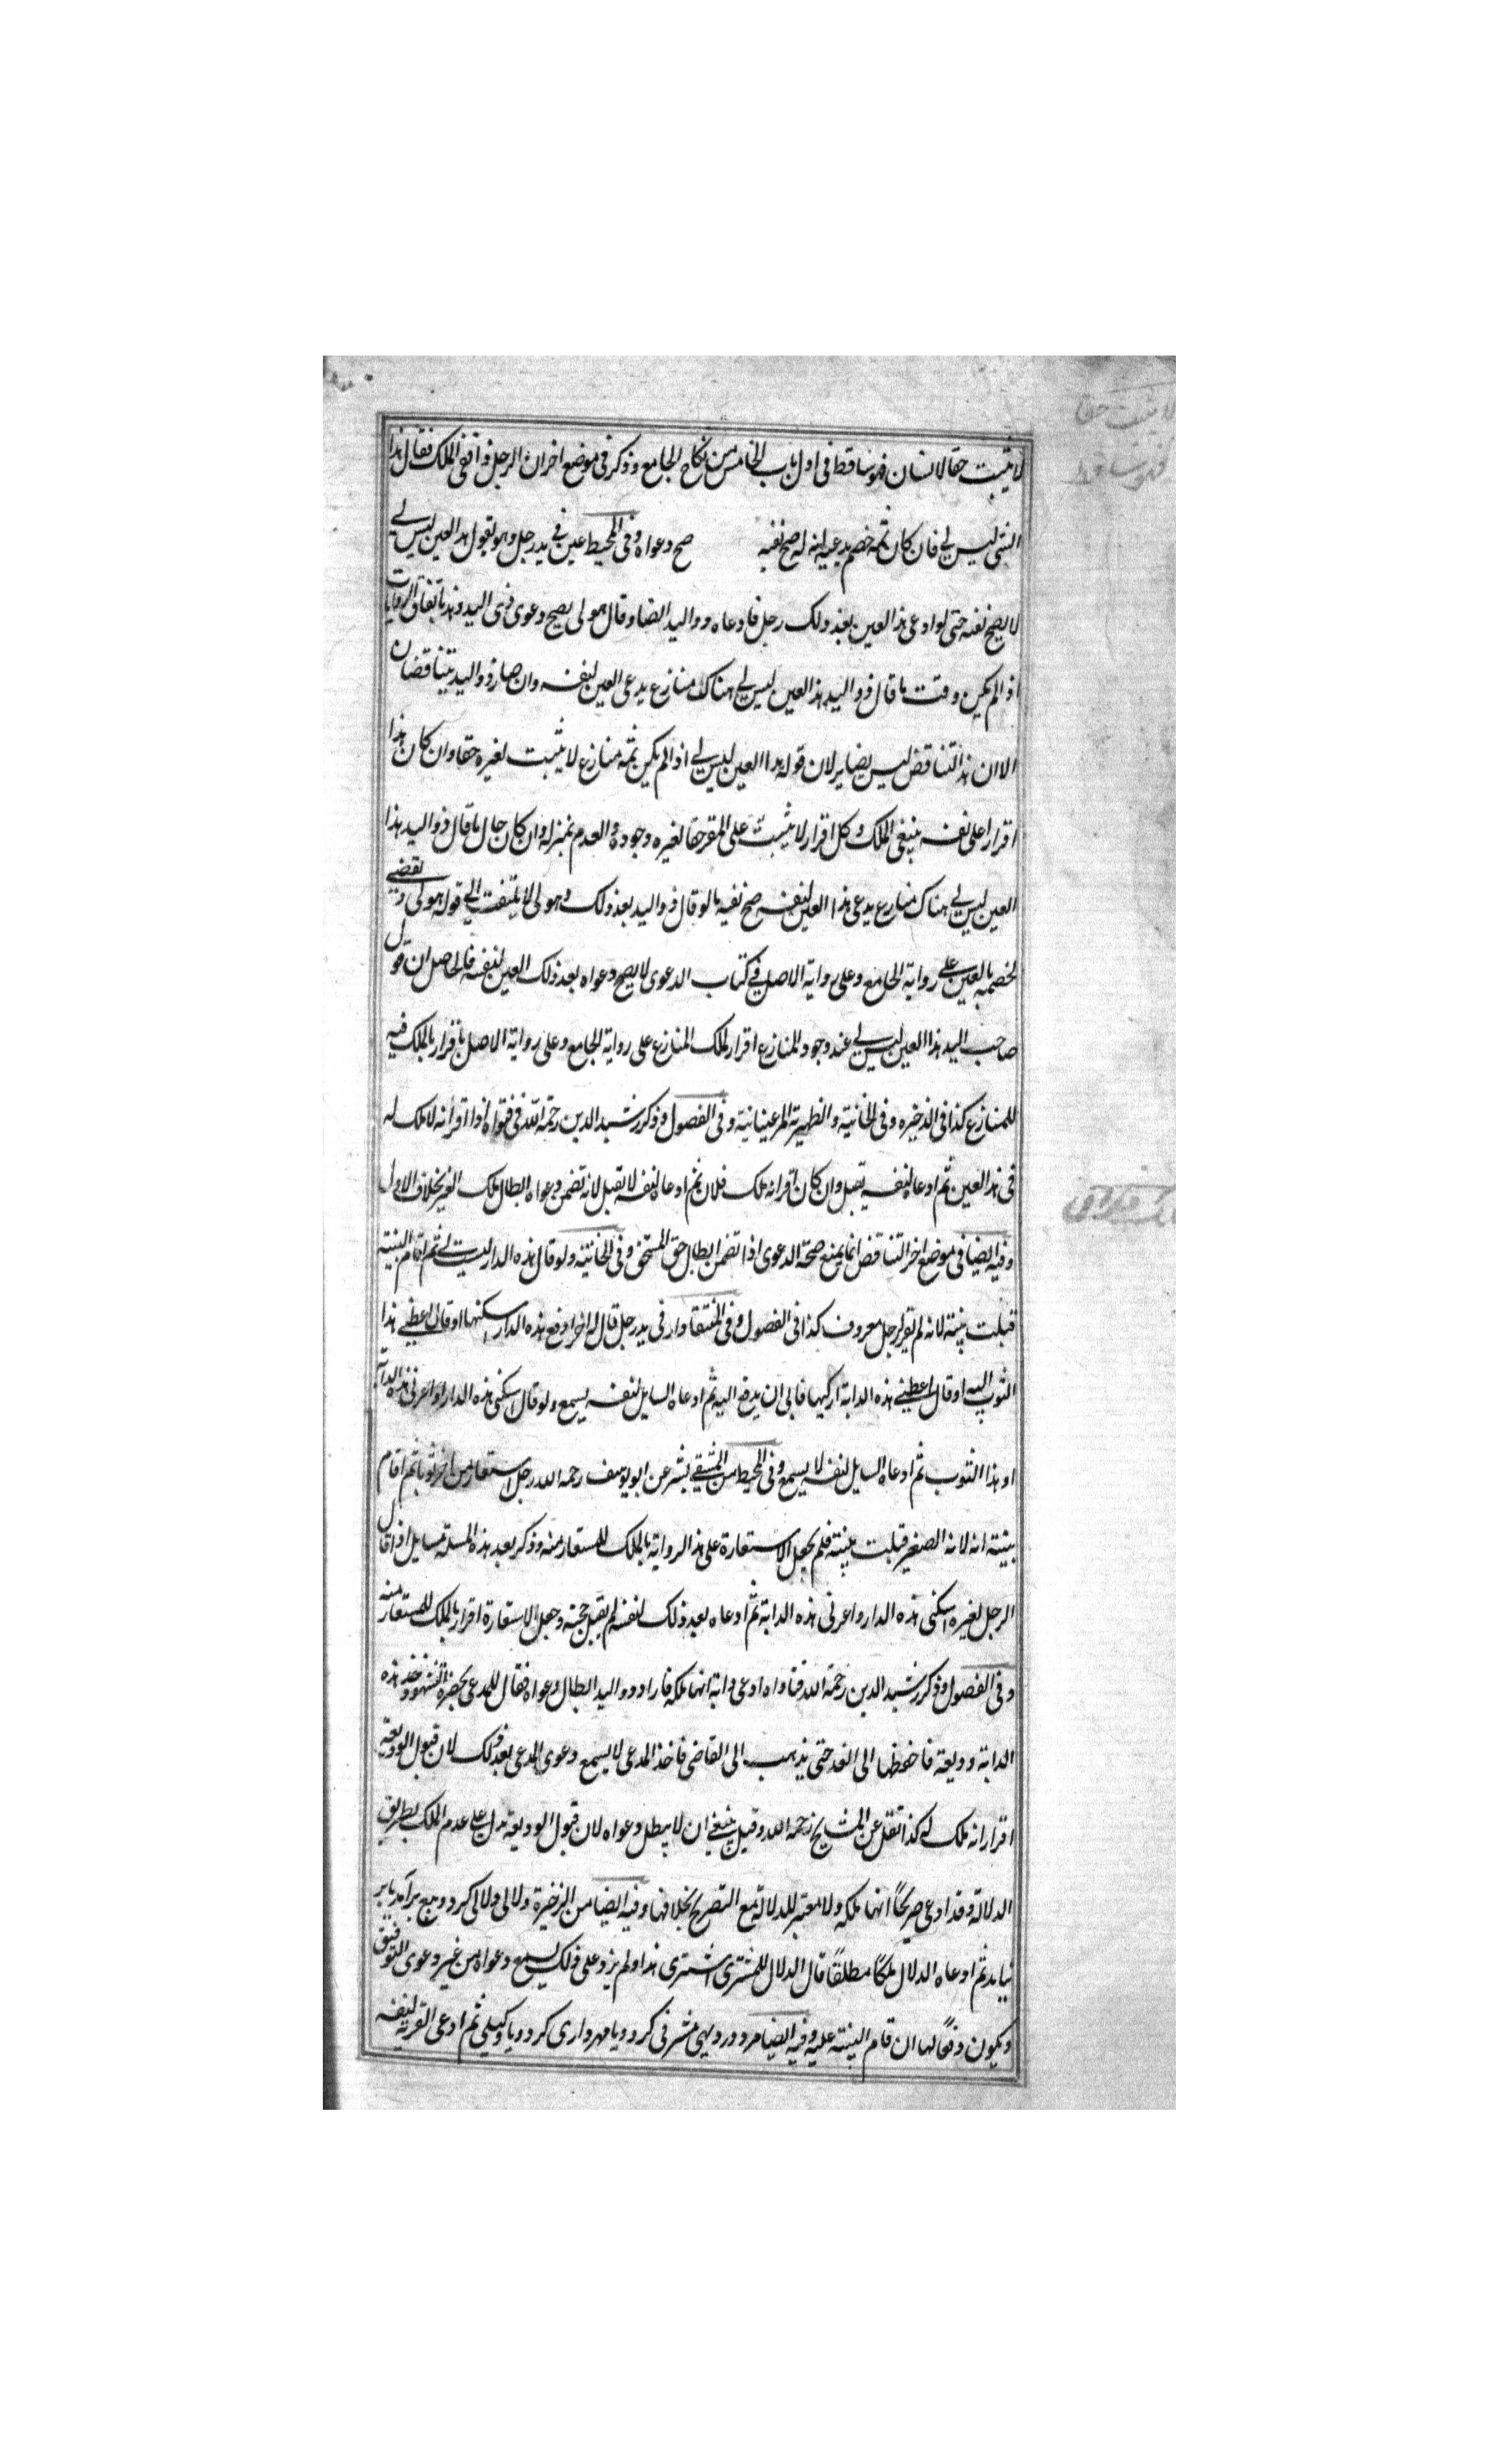 لا یثبت حقا لانسان فهو ساقط فی اول باب الخامس من نکاح الجامع وذکر فی موضع اخر ان الرجل نفی الملک فقال هذا
الشی لیس لی فان کان ثمه خصم یدعیه انه له صح نفیه صح دعواه وفی المحیط عین فی ید رجل وهو یقول هذا العین لیس لی
لا یصح نفیه حتی لو ادعی هذا العین بعد ذلک رجل فادعاه ذو الید ایضا وقال هو لی یصح دعوی ذی الید وهذا باتفاق الروایات
اذا لم یکن وقت ما قال ذو الید هذا العین لیس لی هناک منازع یدعی العین لنفسه وان صار ذو الید متناقضا
الا ان هذا التناقض لیس بضایر لان قوله هذا العین لیس لی اذا لم یکن ثمه منازع لا یثبت لغیره حقا وان کان هذا
اقرارا علی نفسه بنفی الملک وکل اقرار لا یثبت علی المقر حقا لغیره وجوده والعدم بمنزلة وان کان حال ما قال ذو الید هذا
العین لیس لی هناک منازع یدعی هذا العین لنفسه صح نفیه ما لو قال ذو الید بعد ذلک وهو لی لا یلتفت الی قوله هو لی ویقضی
لخصمه بالعین علی روایة الجامع وعلی روایة الاصل فی کتاب الدعوی لا یصح دعواه بعد ذلک العین لنفسه فالحاصل ان قول
صاحب الید هذا العین لیس لی عند وجود المنازع اقرار بملک المنازع علی روایة الجامع وعلی روایة الاصل باقرار بالملک فیه
للمنازع کذا فی الذخیره وفی الخانیة والظهیریة المرغینانیة وفی الفصول وذکر رشید الدین رحمة الله فی فتواه اذا اقر انه لا ملک له
فی هذا العین ثم ادعاه لنفسه یقبل وان کان اقر انه ملک فلان ثم ادعاه لنفسه لا تقبل لانه تضمن دعواه ابطال ملک الغیر بخلاف الاول
وفیه ایضا فی موضع اخر التناقض انما یمنع صحة الدعوی اذا تضمن ابطال حق المستحق وفی الخانیة ولو قال هذه الدار لیست لی ثم اقام البینة
قبلت بینته لانه لم یقر لرجل معروف کذا فی الفصول وفی المنتقا دار فی ید رجل قال له اخر ادفع هذه الدار اسکنها او قال اعطنی هذا
الثوب البسه او قال اعطنی هذه الدابة ارکبها فابی ان یدفع الیه ثم ادعاه السایل لنفسه یسمع ولو قال اسکنی هذه الدار او اعرنی هذه الدابة
او هذا الثوب ثم ادعاه السایل لنفسه لا یسمع وفی المحیط من المنتقی بشر عن ابو یوسف رحمه الله رجل استعار من اخر ثوبا ثم اقام
بینته انه لابنه الصغیر قبلت بینته فلم یجعل الاستعارة علی هذا الروایة بالملک للمستعار منه وذکر بعد هذه المسلة مسایل اذا قال
الرجل لغیره اسکنی هذه الدار واعرنی هذه الدابة ثم ادعاه بعد ذلک لنفسه لم یقبل حجته وجعل الاستعارة اقرارا بالملک للمستعار منه
وفی الفصول وذکر رشید الدین رحمة الله فتاواه ادعی دابة انها ملکه فاراد ذو الید ابطال دعواه فقال للمدعی بحضرة الشهود خذ هذه
الدابة ودیعة فاحفظها الی الغد حتی یذهب الی القاضی فاخذ المدعی لا یسمع دعوی المدعی بعد ذلک لان قبول الودیعة
اقرار انه ملک له کذا نقل عن المشایخ رحمه الله وقیل ینبغی ان لا یبطل دعواه لان قبول الودیعة یدل علی عدم الملک بطریق
الدلالة وقد ادعی صریحًا انها ملکه ولا معتبر للدلالة مع التصریح بخلافها وفیه ایضا من الذخیرة دلالی دلالی کرد وبیع برآمد یا بر
نیامد ثم ادعاه الدلال ملکًا مطلقًا قال الدلال للمشتری اشتری هذا ولم یزد علی ذلک یسمع دعواه من غیر دعوی التوفیق
ویکون دفعًا لها ان قام البینة علیه وفیه ایضا مرد در دیهی مشرفی کرد ویا مهرداری کرد ویا وکیلی ثم ادعی القریة لنفسه